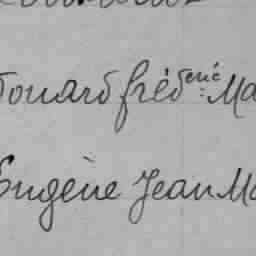 Edouard fréd^eric Ma
Eugène Jean Ma